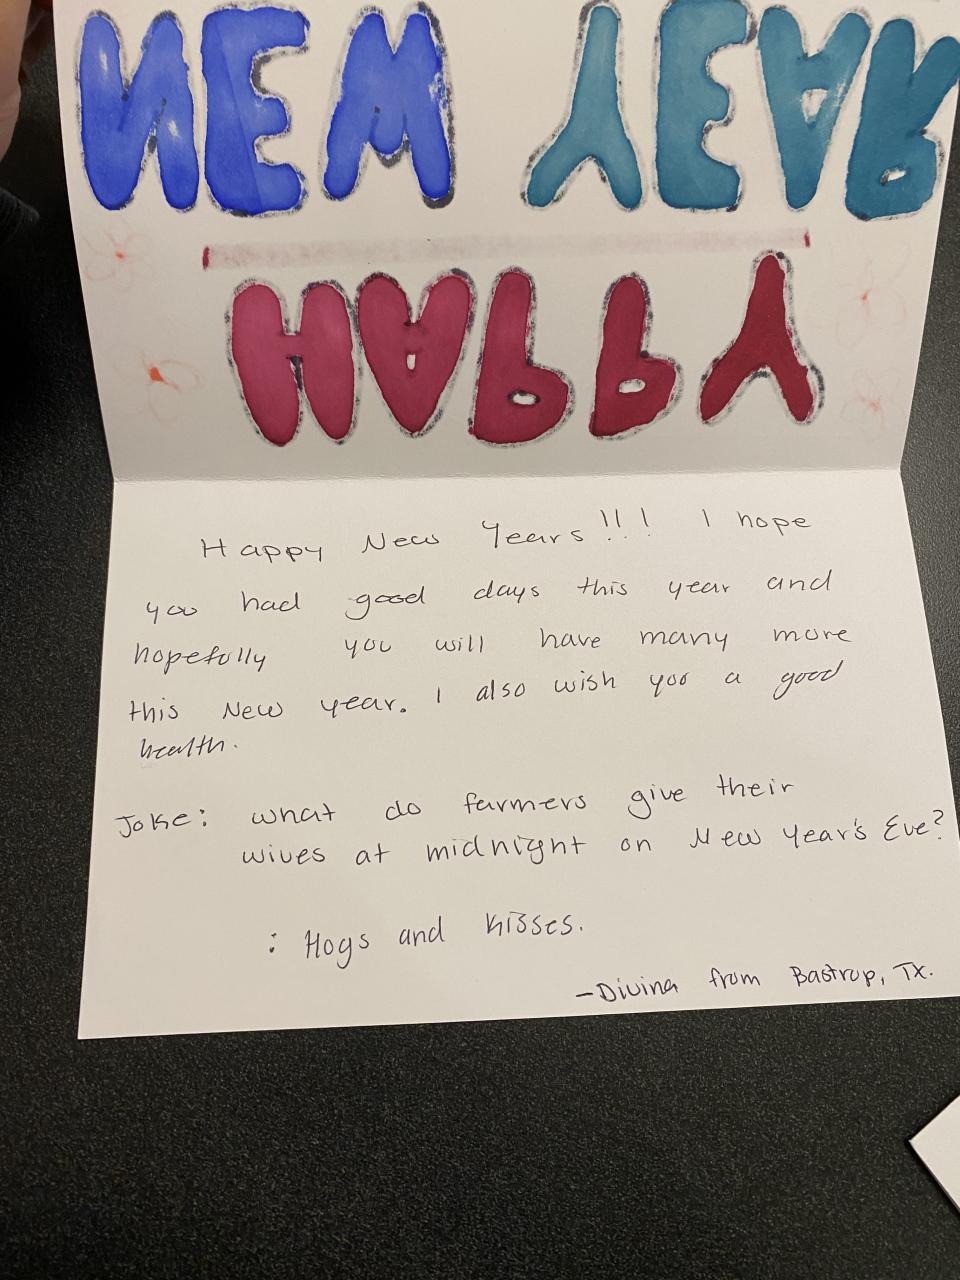 NEW YEAR
HAPPY
Happy New Years!!! I hope
you had good days this year and
hopefully you will have many more
this New year. I also wish you a good
health.
Joke: what do farmers give their
wives at midnight on New Year's Eve?
: Hogs and kisses.
-Divina from Bastrop, Tx.